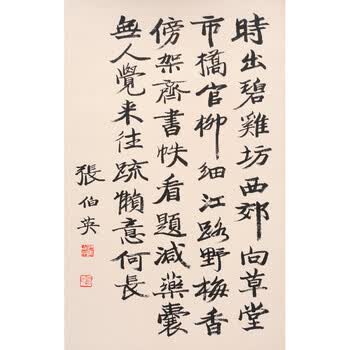 時出碧雞坊西郊向草堂
市橋官柳細江路野梅香
傍架齊書帙看題減藥囊
無人覺来往疏懶意何長
張伯英